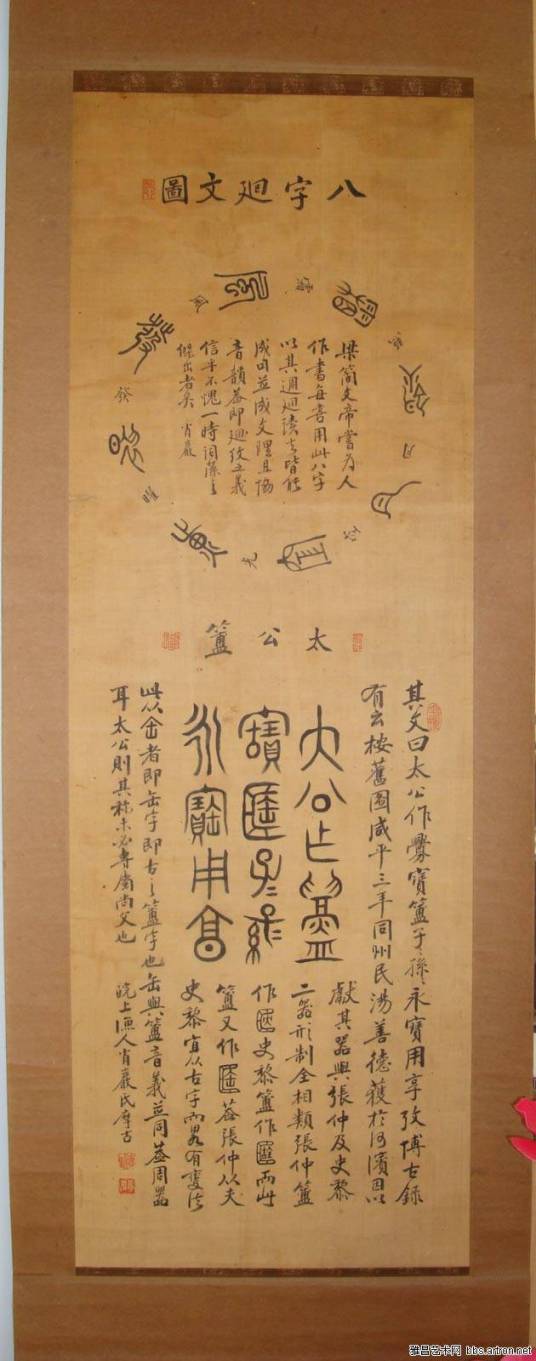 八字迴文圖
梁簡文帝嘗為人
作書每喜用此八字
以其週迴讀之皆能
成句並成文理且協
音韻蓋即迴紋之義
信乎不愧一時詞藻之
傑出者矣 肖巖
月
光
風
太公簠
其文曰太公作寶簠子孫永寶用享攷博古錄
有云按舊圖咸平三年同州民湯善德獲於河濱因以
大公作
寶子孫
永寶用享
獻其器與張仲及史黎
二器形制全相類張仲簠
作史黎簠作而此
簠又作蓋張仲以夫
史黎宜以古字而畧有變法
此从者即缶字即古之簠字也缶與簠音義並同蓋周器
耳太公則其稱未必專屬尚父也
皖上漁人肖巖氏摩古
雅昌艺术网 bbs.artron.net